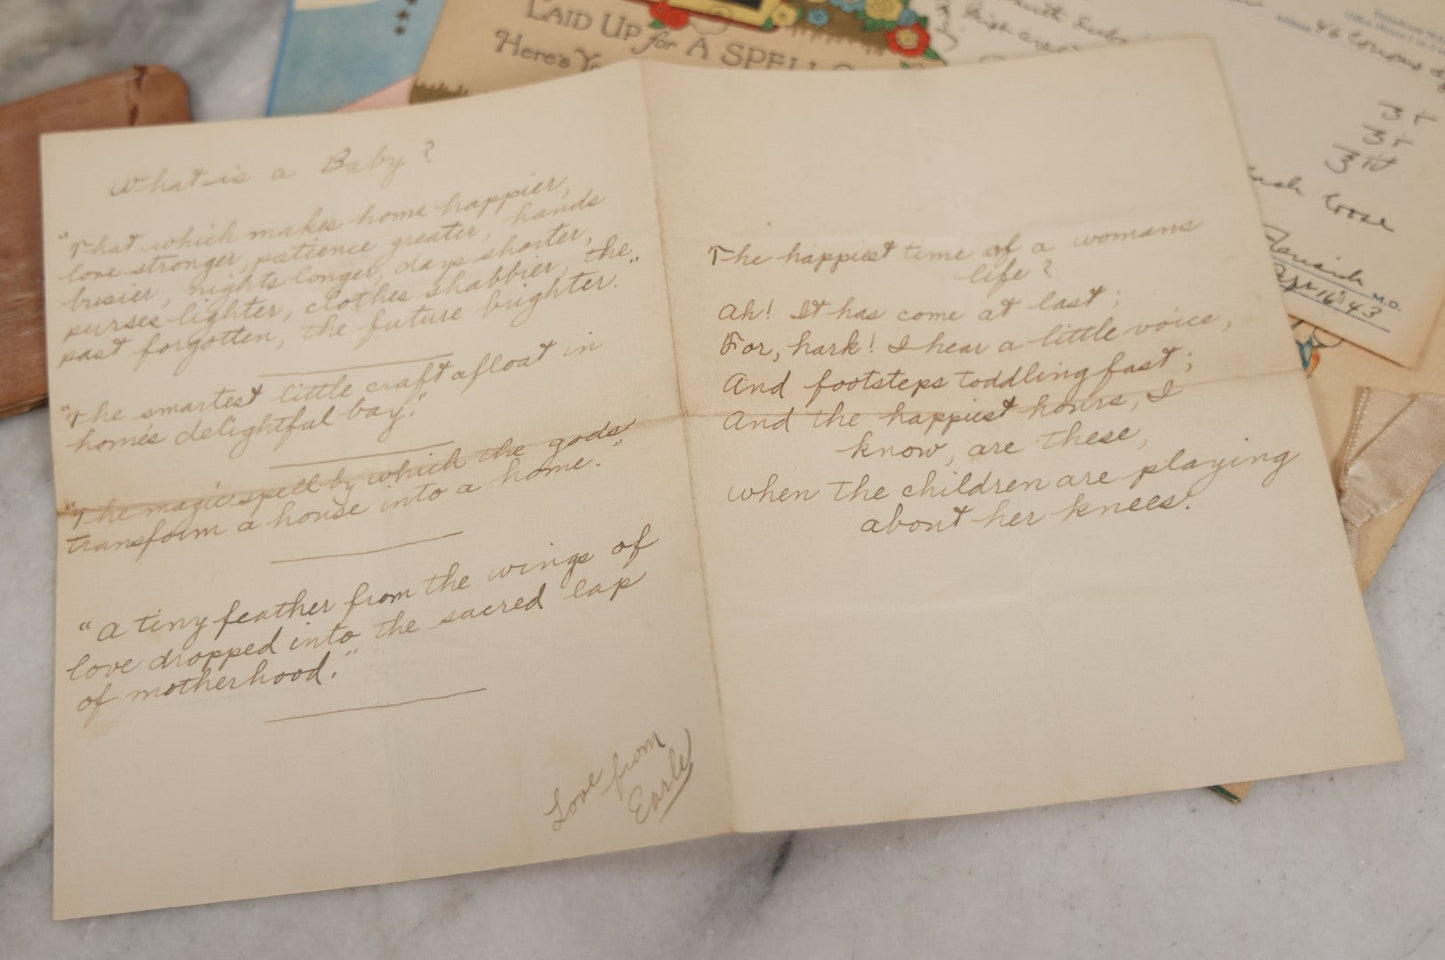 What is a Baby?
"That which makes home happier,
love stronger, patience greater, hands
busier, nights longer, days shorter,
purses lighter, clothes shabbier, the
past forgotten, the future brighter."
"The smartest little craft afloat in
home's delightful bay."
"The magic spell by which the gods
transform a house into a home."
"A tiny feather from the wings of
love dropped into the sacred lap
of motherhood."
Love from
Earle
The happiest time of a womans
life?
Ah! It has come at last;
For, hark! I hear a little voice,
And footsteps toddling fast;
And the happiest hours, I
know, are these,
when the children are playing
about her knees.
LAID UP for A SPELL
Here's
M.D.